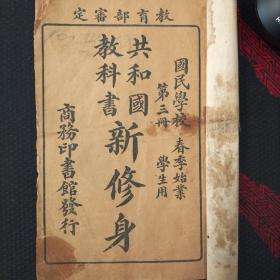 教育部審定
國民學校 春季始業
第三冊 學生用
共和國
教科書
新修身
商務印書館發行